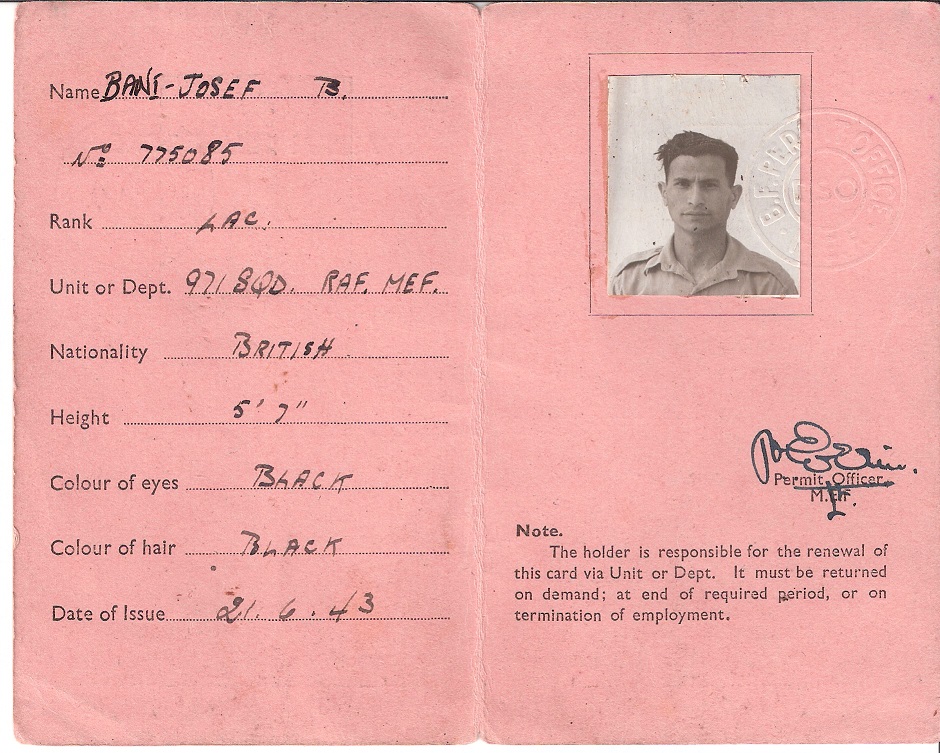 Name BANI-JOSEF B.
No 775085
Rank LAC.
Unit or Dept. 971 SQD. RAF. MEF.
Nationality BRITISH
Height 5' 7"
Colour of eyes BLACK
Colour of hair BLACK
Date of Issue 21.6.43
Permit Officer
Note.
The holder is responsible for the renewal of
this card via Unit or Dept. It must be returned
on demand; at end of required period, or on
termination of employment.